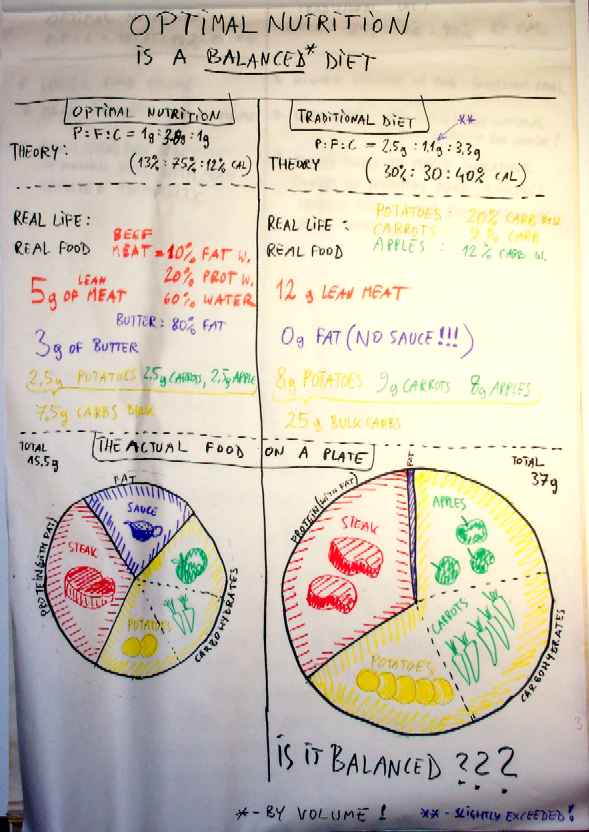 OPTIMAL NUTRITION
IS A BALANCED* DIET
OPTIMAL NUTRITION
P:F:C = 1g: :1g
THEORY:
(13%:75%:12% CAL)
REAL LIFE:
REAL FOOD
BEEF
MEAT = 10% FAT W.
20% PROT W.
60% WATER
LEAN
5g OF MEAT
BUTTER: 80% FAT
3g OF BUTTER
2,5g POTATOES 2,5g CARROTS, 2,5g APPLE
7,5g CARBS BULK
TRADITIONAL DIET
**
P:F:C = 2.5g:1.1g:3.3g
THEORY
(30%:30:40% CAL)
REAL LIFE:
REAL FOOD
POTATOES: 20% CARB
CARROTS 9% CARB
APPLES: 12% CARB W.
12 g LEAN MEAT
0g FAT (NO SAUCE!!!)
8g POTATOES 9g CARROTS 8g APPLES
25g BULK CARBS
THE ACTUAL FOOD ON A PLATE
TOTAL
15,5g
FAT
SAUCE
PROTEIN (WITH FAT)
STEAK
POTATOES
CARBOHYDRATES
TOTAL
37g
FAT
PROTEIN (WITH FAT)
STEAK
APPLES
CARROTS
POTATOES
CARBOHYDRATES
IS IT BALANCED ???
3
*- BY VOLUME!
**- SLIGHTLY EXCEEDED!